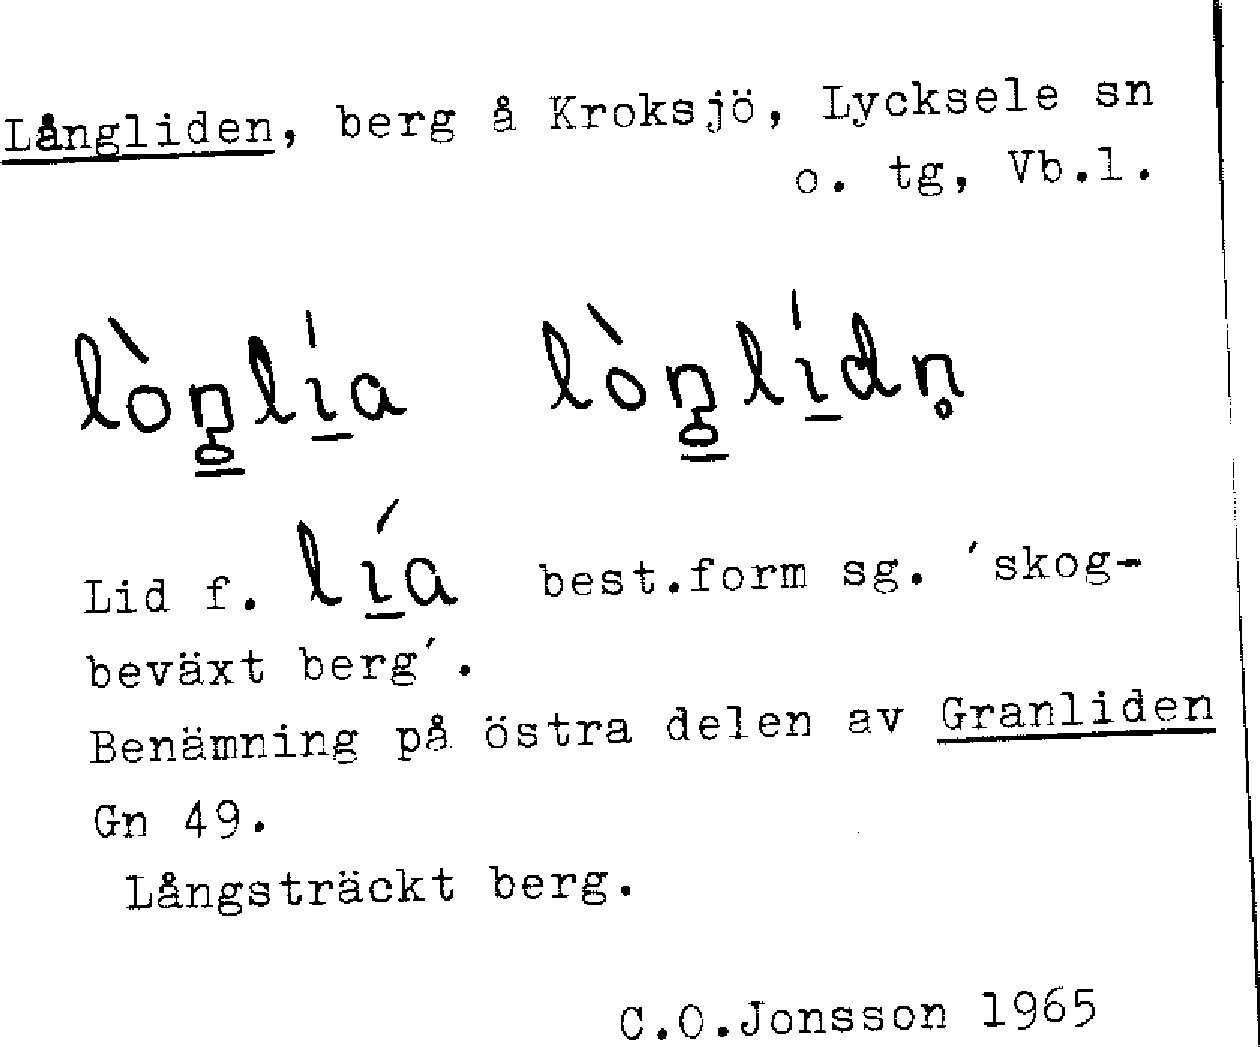 Långliden, berg å Kroksjö, Lycksele sn
o. tg, Vb.l.
lòŋlı̱́a lòŋlı̱́dn̥
Lid f. lı̱́a best.form sg. ´skog-
beväxt berg´.
Benämning på östra delen av Granliden
Gn 49.
Långsträckt berg.
C.O.Jonsson 1965